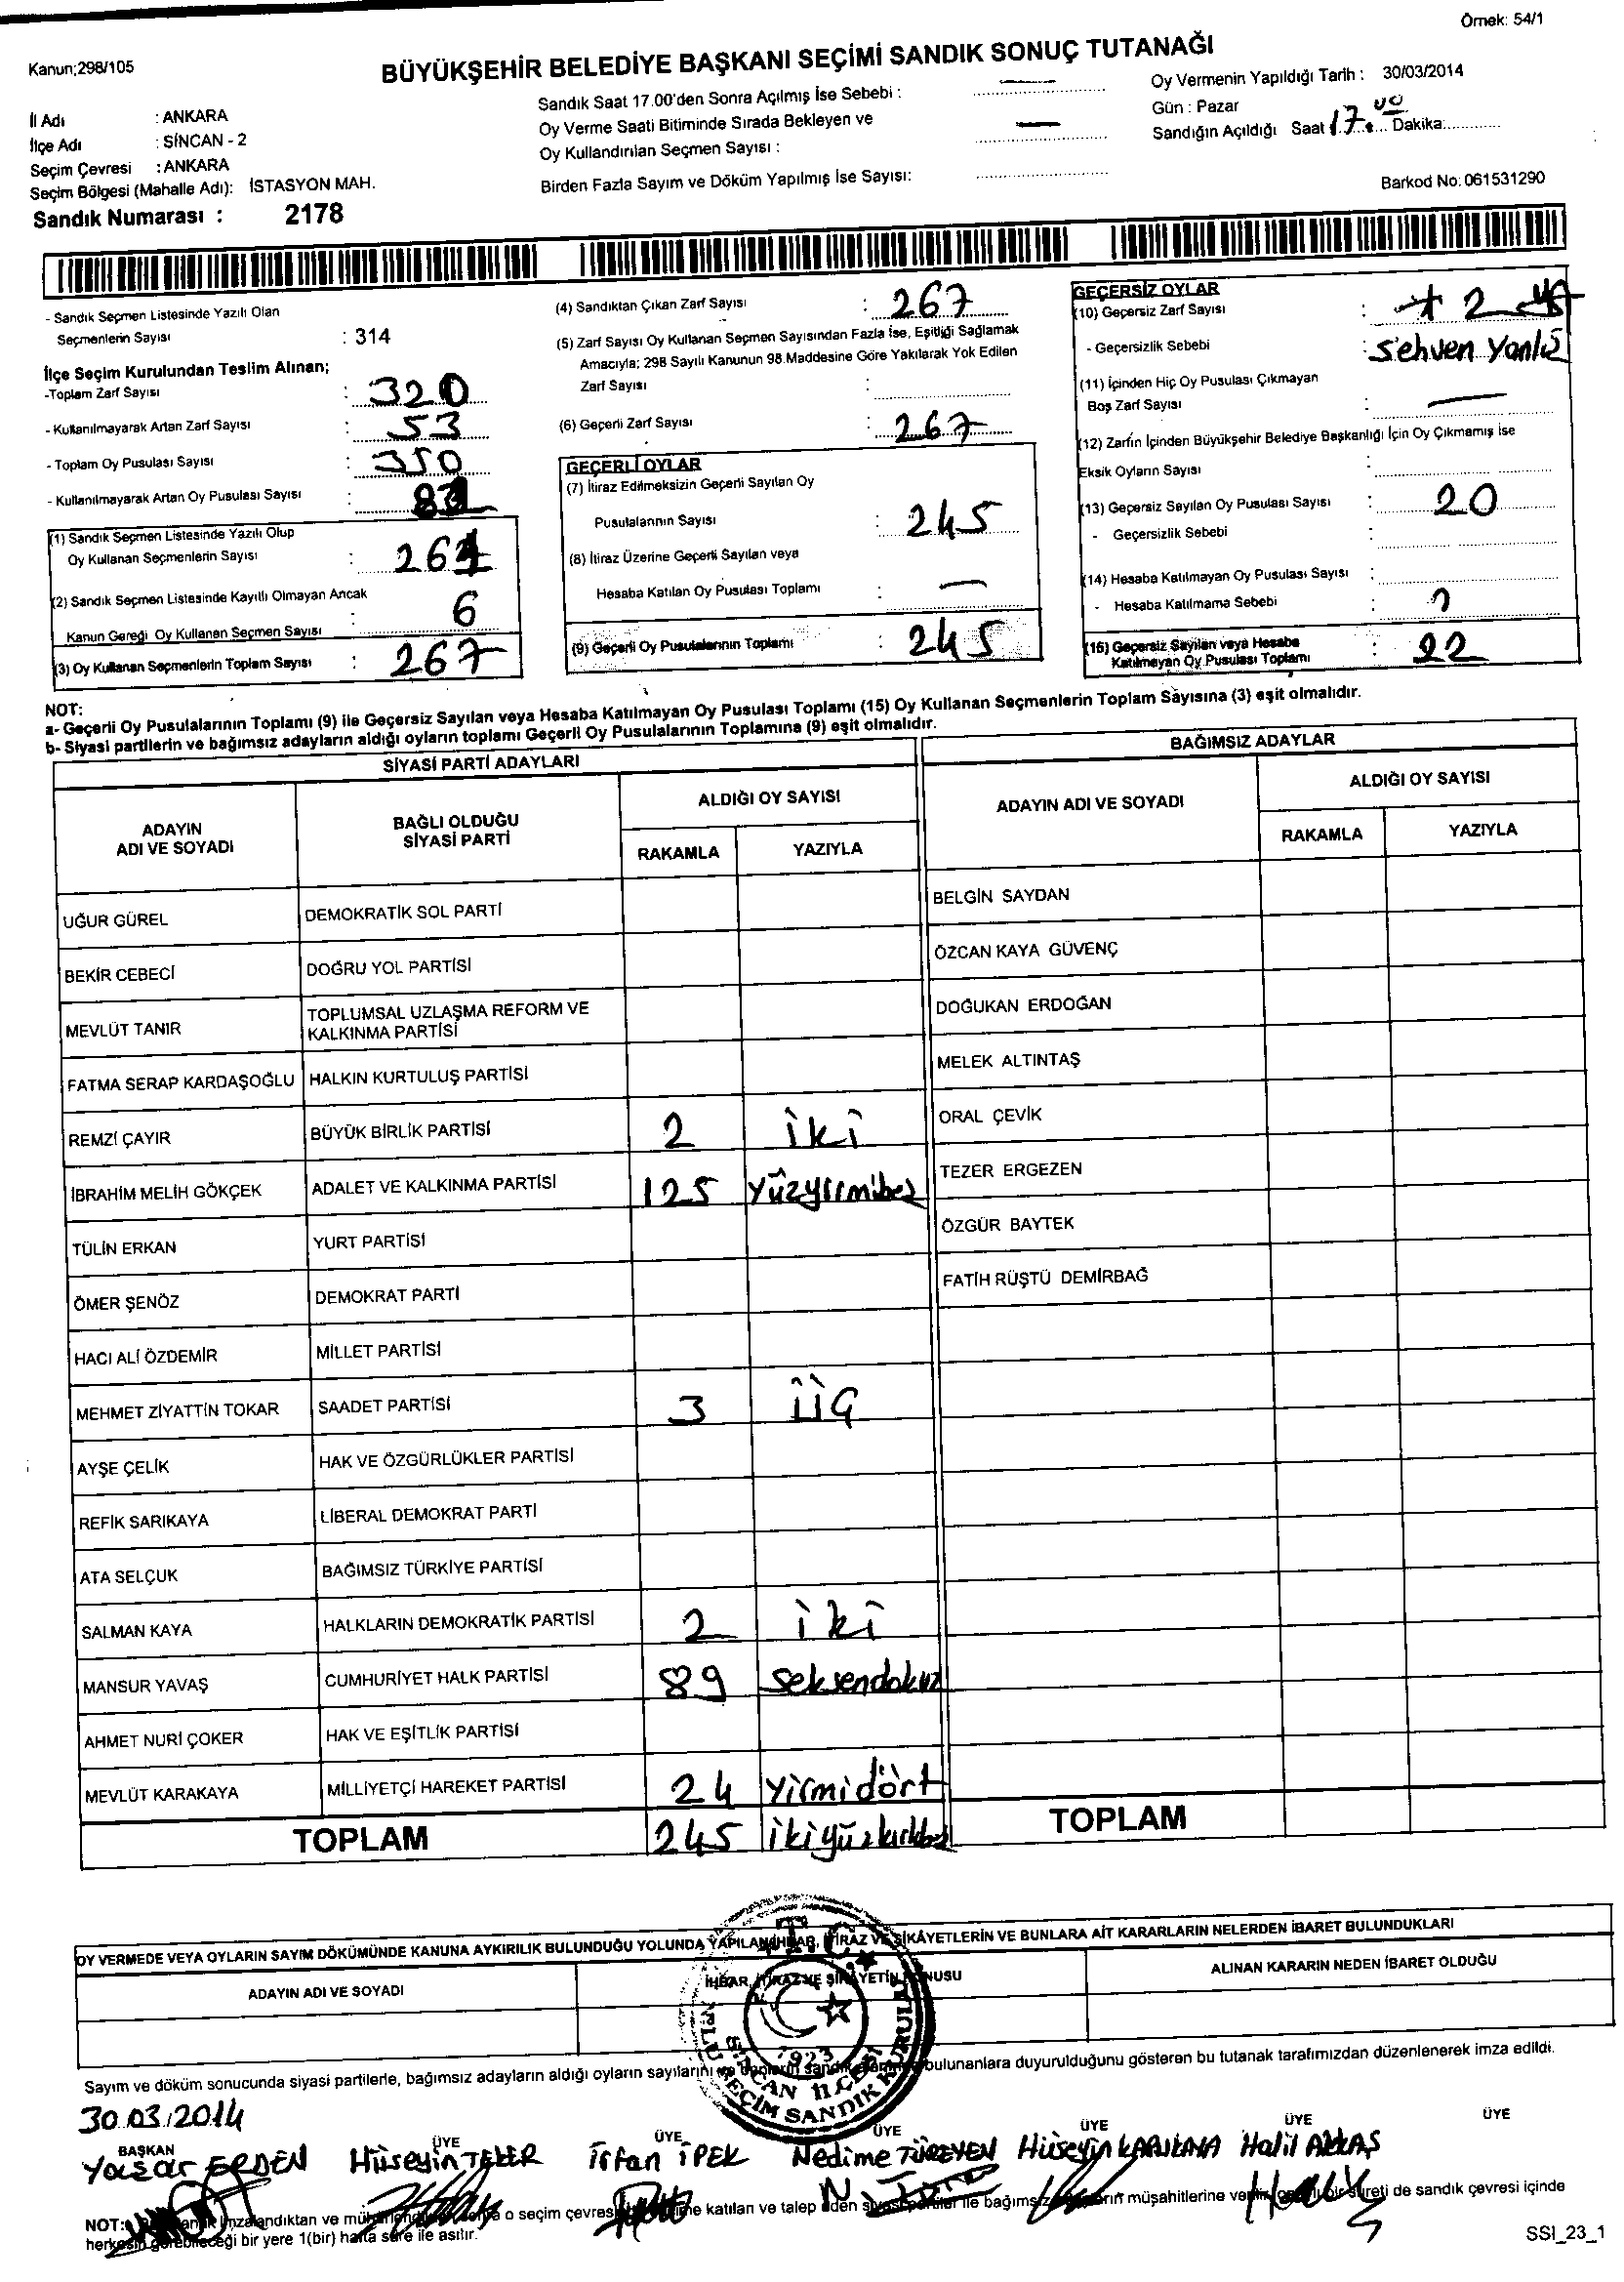 Örnek: 54/1
Kanun;298/105
BÜYÜKŞEHİR BELEDİYE BAŞKANI SEÇİMİ SANDIK SONUÇ TUTANAĞI
İl Adı : ANKARA
İlçe Adı : SİNCAN - 2
Seçim Çevresi : ANKARA
Seçim Bölgesi (Mahalle Adı): İSTASYON MAH.
Sandık Numarası : 2178
Sandık Saat 17.00'den Sonra Açılmış İse Sebebi :
Oy Verme Saati Bitiminde Sırada Bekleyen ve
Oy Kullandırılan Seçmen Sayısı :
Birden Fazla Sayım ve Döküm Yapılmış İse Sayısı:
Oy Vermenin Yapıldığı Tarih : 30/03/2014
Gün : Pazar
Sandığın Açıldığı Saat 17.00 Dakika:
Barkod No: 061531290
- Sandık Seçmen Listesinde Yazılı Olan
Seçmenlerin Sayısı : 314
İlçe Seçim Kurulundan Teslim Alınan;
-Toplam Zarf Sayısı : 320
- Kullanılmayarak Artan Zarf Sayısı : 53
- Toplam Oy Pusulası Sayısı : 350
- Kullanılmayarak Artan Oy Pusulası Sayısı :
(1) Sandık Seçmen Listesinde Yazılı Olup
Oy Kullanan Seçmenlerin Sayısı : 261
(2) Sandık Seçmen Listesinde Kayıtlı Olmayan Ancak
Kanun Gereği Oy Kullanan Seçmen Sayısı : 6
(3) Oy Kullanan Seçmenlerin Toplam Sayısı : 267
(4) Sandıktan Çıkan Zarf Sayısı : 267
(5) Zarf Sayısı Oy Kullanan Seçmen Sayısından Fazla İse, Eşitliği Sağlamak
Amacıyla; 298 Sayılı Kanunun 98.Maddesine Göre Yakılarak Yok Edilen
Zarf Sayısı :
(6) Geçerli Zarf Sayısı : 267
GEÇERLİ OYLAR
(7) İtiraz Edilmeksizin Geçerli Sayılan Oy
Pusulalarının Sayısı : 245
(8) İtiraz Üzerine Geçerli Sayılan veya
Hesaba Katılan Oy Pusulası Toplamı : —
(9) Geçerli Oy Pusulalarının Toplamı : 245
GEÇERSİZ OYLAR
(10) Geçersiz Zarf Sayısı : 2
- Geçersizlik Sebebi : Sehven Yanlış
(11) İçinden Hiç Oy Pusulası Çıkmayan
Boş Zarf Sayısı : —
(12) Zarfın İçinden Büyükşehir Belediye Başkanlığı İçin Oy Çıkmamış İse
Eksik Oyların Sayısı :
(13) Geçersiz Sayılan Oy Pusulası Sayısı : 20
- Geçersizlik Sebebi :
(14) Hesaba Katılmayan Oy Pusulası Sayısı :
- Hesaba Katılmama Sebebi :
(15) Geçersiz Sayılan veya Hesaba
Katılmayan Oy Pusulası Toplamı : 22
NOT:
a- Geçerli Oy Pusulalarının Toplamı (9) ile Geçersiz Sayılan veya Hesaba Katılmayan Oy Pusulası Toplamı (15) Oy Kullanan Seçmenlerin Toplam Sayısına (3) eşit olmalıdır.
b- Siyasi partilerin ve bağımsız adayların aldığı oyların toplamı Geçerli Oy Pusulalarının Toplamına (9) eşit olmalıdır.
SİYASİ PARTİ ADAYLARI
ADAYIN ADI VE SOYADI BAĞLI OLDUĞU SİYASİ PARTİ ALDIĞI OY SAYISI
RAKAMLA YAZIYLA
UĞUR GÜREL DEMOKRATİK SOL PARTİ
BEKİR CEBECİ DOĞRU YOL PARTİSİ
MEVLÜT TANIR TOPLUMSAL UZLAŞMA REFORM VE KALKINMA PARTİSİ
FATMA SERAP KARDAŞOĞLU HALKIN KURTULUŞ PARTİSİ
REMZİ ÇAYIR BÜYÜK BİRLİK PARTİSİ 2 iki
İBRAHİM MELİH GÖKÇEK ADALET VE KALKINMA PARTİSİ 125 yüzyirmibeş
TÜLİN ERKAN YURT PARTİSİ
ÖMER ŞENÖZ DEMOKRAT PARTİ
HACI ALİ ÖZDEMİR MİLLET PARTİSİ
MEHMET ZİYATTİN TOKAR SAADET PARTİSİ 3 üç
AYŞE ÇELİK HAK VE ÖZGÜRLÜKLER PARTİSİ
REFİK SARIKAYA LİBERAL DEMOKRAT PARTİ
ATA SELÇUK BAĞIMSIZ TÜRKİYE PARTİSİ
SALMAN KAYA HALKLARIN DEMOKRATİK PARTİSİ 2 iki
MANSUR YAVAŞ CUMHURİYET HALK PARTİSİ 89 seksendokuz
AHMET NURİ ÇOKER HAK VE EŞİTLİK PARTİSİ
MEVLÜT KARAKAYA MİLLİYETÇİ HAREKET PARTİSİ 24 yirmidört
TOPLAM 245 ikiyüzkırkbeş
BAĞIMSIZ ADAYLAR
ADAYIN ADI VE SOYADI ALDIĞI OY SAYISI
RAKAMLA YAZIYLA
BELGİN SAYDAN
ÖZCAN KAYA GÜVENÇ
DOĞUKAN ERDOĞAN
MELEK ALTINTAŞ
ORAL ÇEVİK
TEZER ERGEZEN
ÖZGÜR BAYTEK
FATİH RÜŞTÜ DEMİRBAĞ
TOPLAM
OY VERMEDE VEYA OYLARIN SAYIM DÖKÜMÜNDE KANUNA AYKIRILIK BULUNDUĞU YOLUNDA YAPILAN İHBAR, İTİRAZ VE ŞİKAYETLERİN VE BUNLARA AİT KARARLARIN NELERDEN İBARET BULUNDUKLARI
ADAYIN ADI VE SOYADI İHBAR, İTİRAZ VE ŞİKAYETİN KONUSU ALINAN KARARIN NEDEN İBARET OLDUĞU
T.C.
1923
SİNCAN İLÇESİ
SEÇİM SANDIK KURULU
Sayım ve döküm sonucunda siyasi partilerle, bağımsız adayların aldığı oyların sayılarını bulunanlara duyurulduğunu gösteren bu tutanak tarafımızdan düzenlenerek imza edildi.
30.03.2014
BAŞKAN ÜYE ÜYE ÜYE ÜYE ÜYE ÜYE
Yaşar ERDEN Hüseyin TEKER İrfan İPEK Nedime TÜREYEN Hüseyin KARAKAYA Halil AKKAŞ
NOT: imzalandıktan ve o seçim çevresi katılan ve talep eden siyasi partiler ile bağımsız müşahitlerine verilir, sureti de sandık çevresi içinde
herkesin görebileceği bir yere 1(bir) hafta süre ile asılır.
SSI_23_1